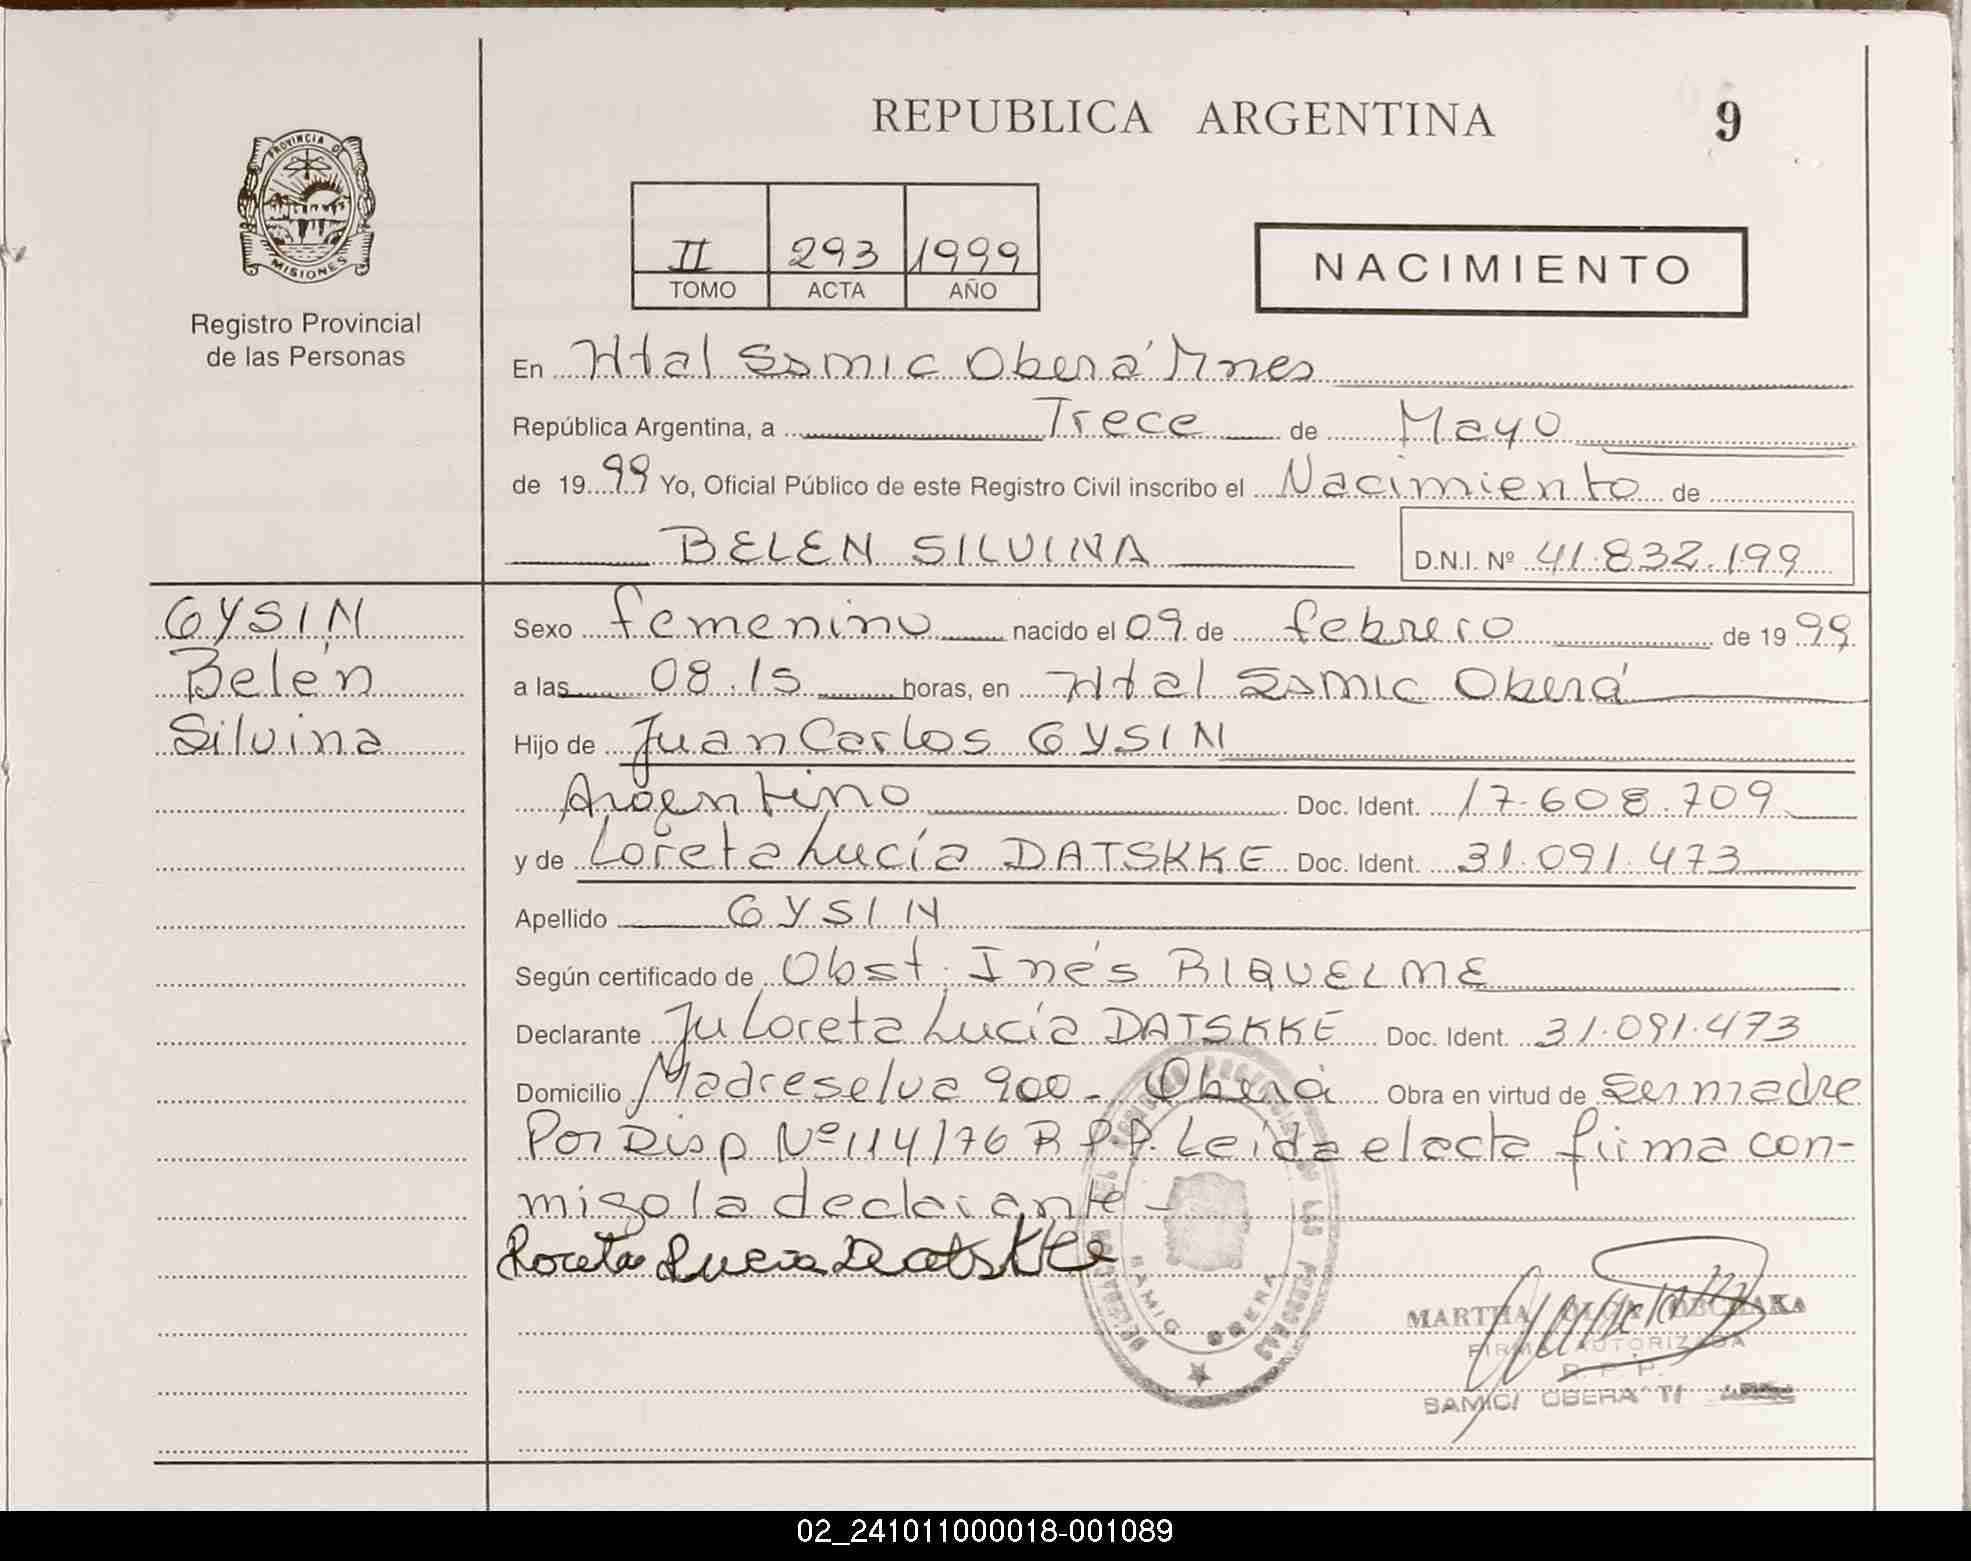 REPUBLICA ARGENTINA
9
PROVINCIA DE
MISIONES
Registro Provincial
de las Personas
II 293 1999
TOMO ACTA AÑO
NACIMIENTO
En Htal Samic Oberá Mnes
República Argentina, a Trece de Mayo
de 1999 Yo, Oficial Público de este Registro Civil inscribo el Nacimiento de
BELEN SILVINA D.N.I. Nº 41.832.199
GYSIN
Belén
Silvina
Sexo femenino nacido el 09 de febrero de 1999
a las 08.15 horas, en Htal Samic Oberá
Hijo de Juan Carlos GYSIN
Argentino Doc. Ident. 17.608.709
y de Loreta Lucía DATSKKE Doc. Ident. 31.091.473
Apellido GYSIN
Según certificado de Obst. Inés RIQUELME
Declarante Ju Loreta Lucía DATSKKE Doc. Ident. 31.091.473
Domicilio Madreselva 900 - Oberá Obra en virtud de ser madre
Por Disp Nº 114/76 R.P.P. Leída el acta firma con-
migo la declarante -
Loreta Lucia Datskke
SAMIC OBERA
MARTHA
FIRMA AUTORIZADA
R. P. P.
SAMIC/ OBERA
02_241011000018-001089